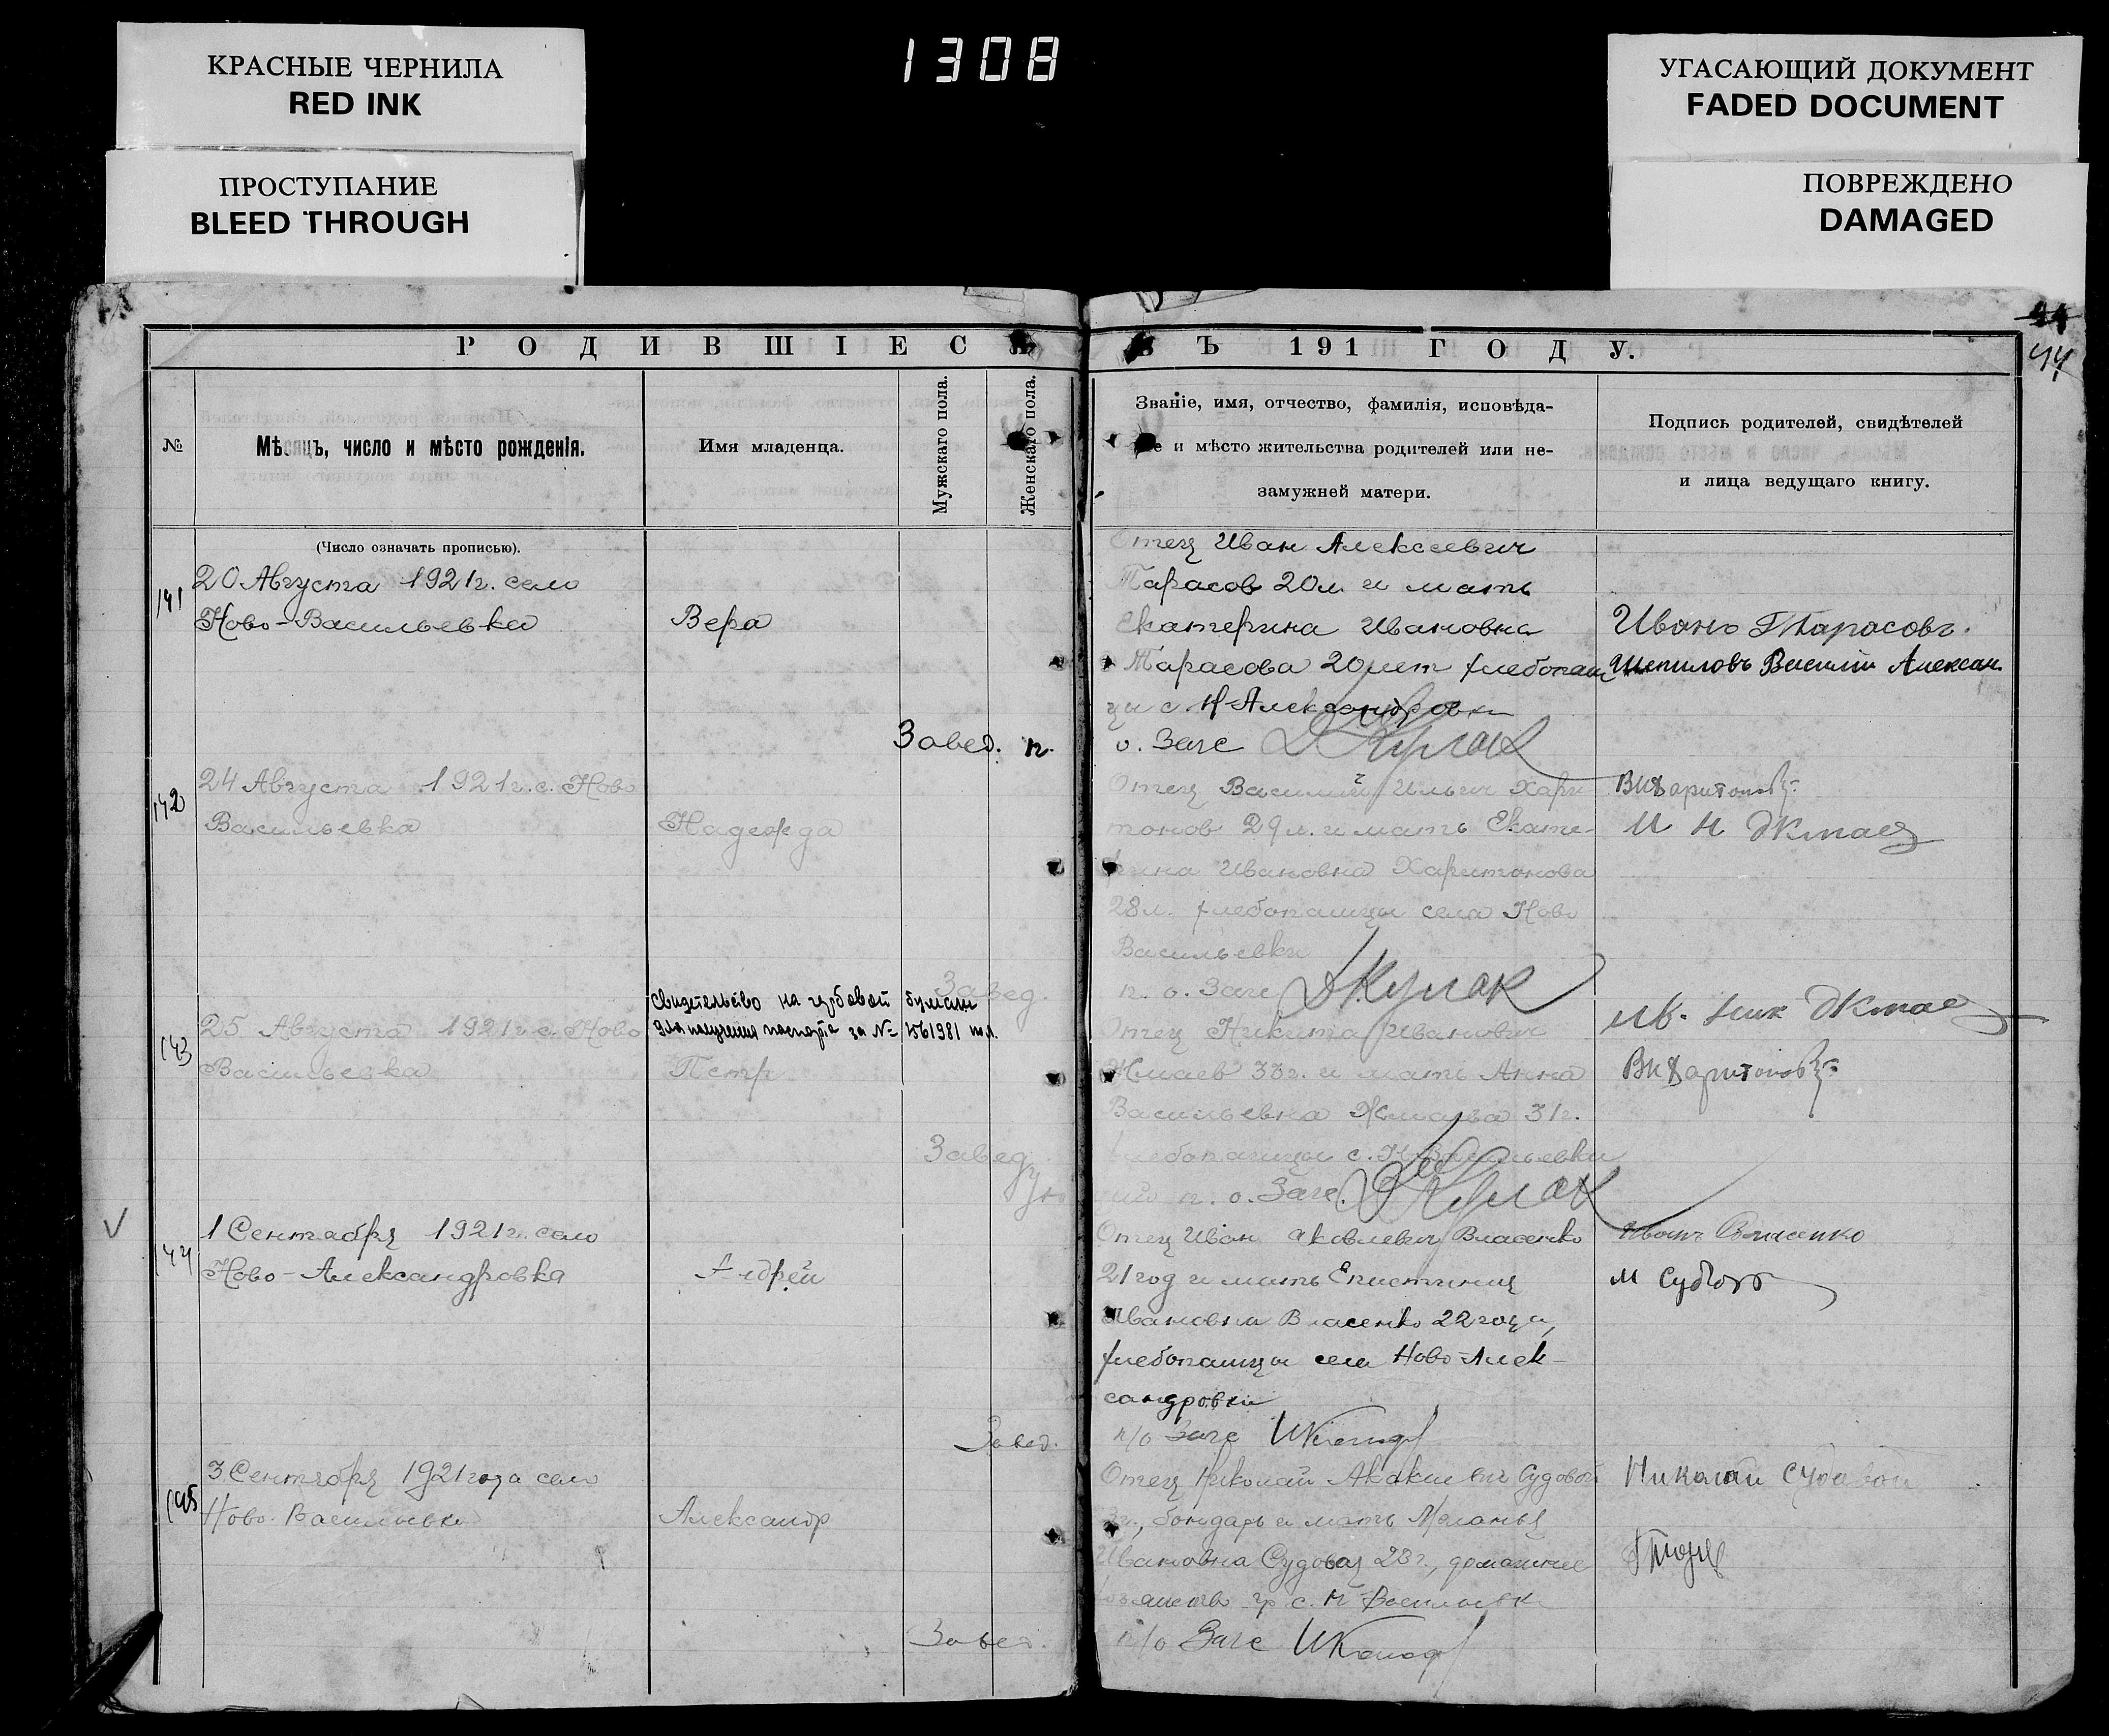 КРАСНЫЕ ЧЕРНИЛА
RED INK
ПРОСТУПАНИЕ
BLEED THROUGH
1308
УГАСАЮЩИЙ ДОКУМЕНТ
FADED DOCUMENT
ПОВРЕЖДЕНО
DAMAGED
44
РОДИВШІЕС Ъ 191 ГОДУ.
№
Мѣсяцъ, число и мѣсто рожденія.
Имя младенца.
Мужскаго пола.
Женскаго пола.
Званіе, имя, отчество, фамилія, исповѣда-
е и мѣсто жительства родителей или не-
замужней матери.
Подпись родителей, свидѣтелей
и лица ведущаго книгу.
(Число означать прописью).
141
20 Августа 1921г. село
Ново-Васильевка
Вера
Отец Иван Алексеевич
Тарасов 20л. и мать
Екатерина Ивановна
Тарасова 20 лет хлебопаш
цы с. Н-Александровки
Завед. п.
о. Загс ДКулак
Иванъ Тарасовъ.
Шепиловъ Василий Алексан.
142
24 Августа 1921г. с. Ново
Васильевка
Надежда
Отец Василий Ильич Хари
тонов 29л. и мать Екате-
рина Ивановна Харитонова
28л. хлебопашцы села Ново
Васильевки
Завед.
п. о. Загс ДКулак
ВИХаритоновъ
И Н Жмаев
143
25 Августа 1921г. с. Ново
Васильевка
Свидетельство на гербовой бумаги
для получения паспорта за №
Петр
Отец Никита Иванович
Жмаев 33г. и мать Анна
Васильевна Жмаева 31г.
хлебопашцы с. Н-Васильевки
Заведую
щий п. о. Загс. ДКулак
Ив. Ник Жмаев
ВИХаритоновъ
144
1 Сентября 1921г. село
Ново-Александровка
Андрей
Отец Иван Яковлевич Власенко
21 год и мать Епистиния
Ивановна Власенко 22 года,
хлебопашцы села Ново-Алек-
сандровки
Завед.
п/о Загс
Иванъ Власенко
М
145
3 Сентября 1921 года село
Ново-Васильевка
Александр
Отец Николай Акакиевич Судовой
бондарь и мать Меланья
Ивановна Судовая 28г., домашнее
гр. с. Н-Васильевк
Завед.
п/о Загс
Николай Судовой